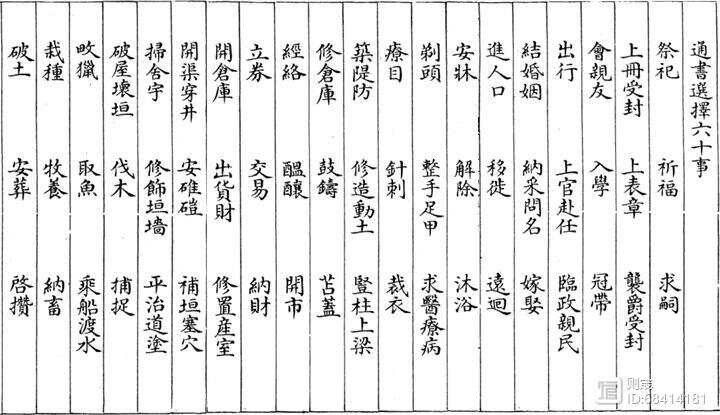 通書選擇六十事
祭祀 祈福 求嗣
上冊受封 上表章 襲爵受封
會親友 入學 冠帶
出行 上官赴任 臨政親民
結婚姻 納采問名 嫁娶
進人口 移徙 遠迴
安牀 解除 沐浴
剃頭 整手足甲 求醫療病
療目 針刺 裁衣
築隄防 修造動土 豎柱上梁
修倉庫 鼓鑄 苫蓋
經絡 醞釀 開市
立券 交易 納財
開倉庫 出貨財 修置産室
開渠穿井 安碓磑 補垣塞穴
掃舍宇 修飾垣墻 平治道塗
破屋壞垣 伐木 捕捉
畋獵 取魚 乘船渡水
栽種 牧養 納畜
破土 安葬 啓攢
则宬
ID:68414181